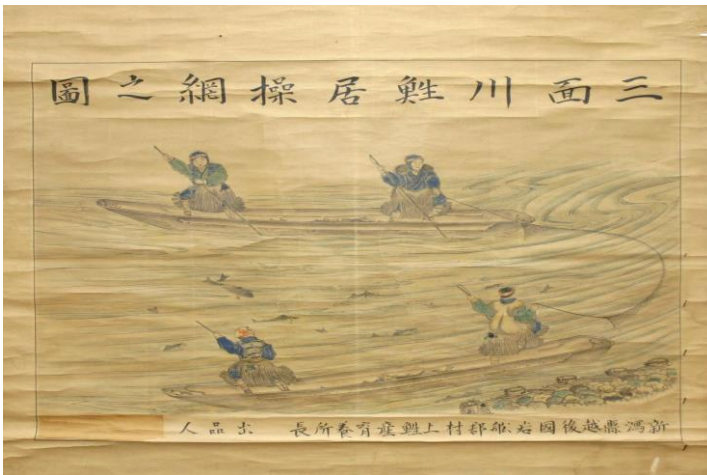 三面川鮏居操網之圖
新潟縣越後國岩船郡村上鮏産育養所長 出品人